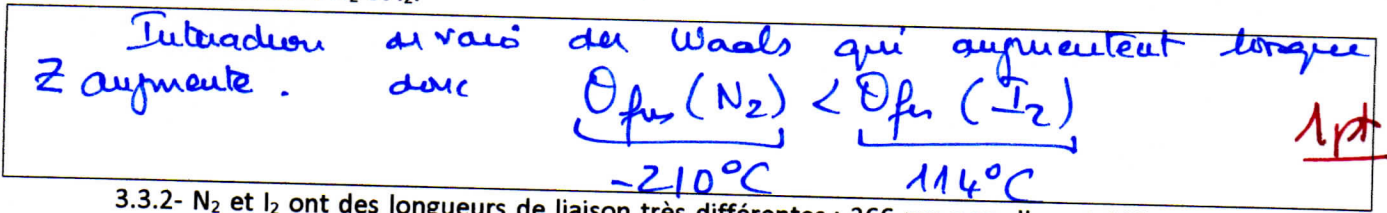 Interaction de van der Waals qui augmentent lorsque
Z augmente. donc θfus (N₂) < θfus (I₂)
1 pt
-210°C 114°C
3.3.2- N₂ et I₂ ont des longueurs de liaison très différentes :